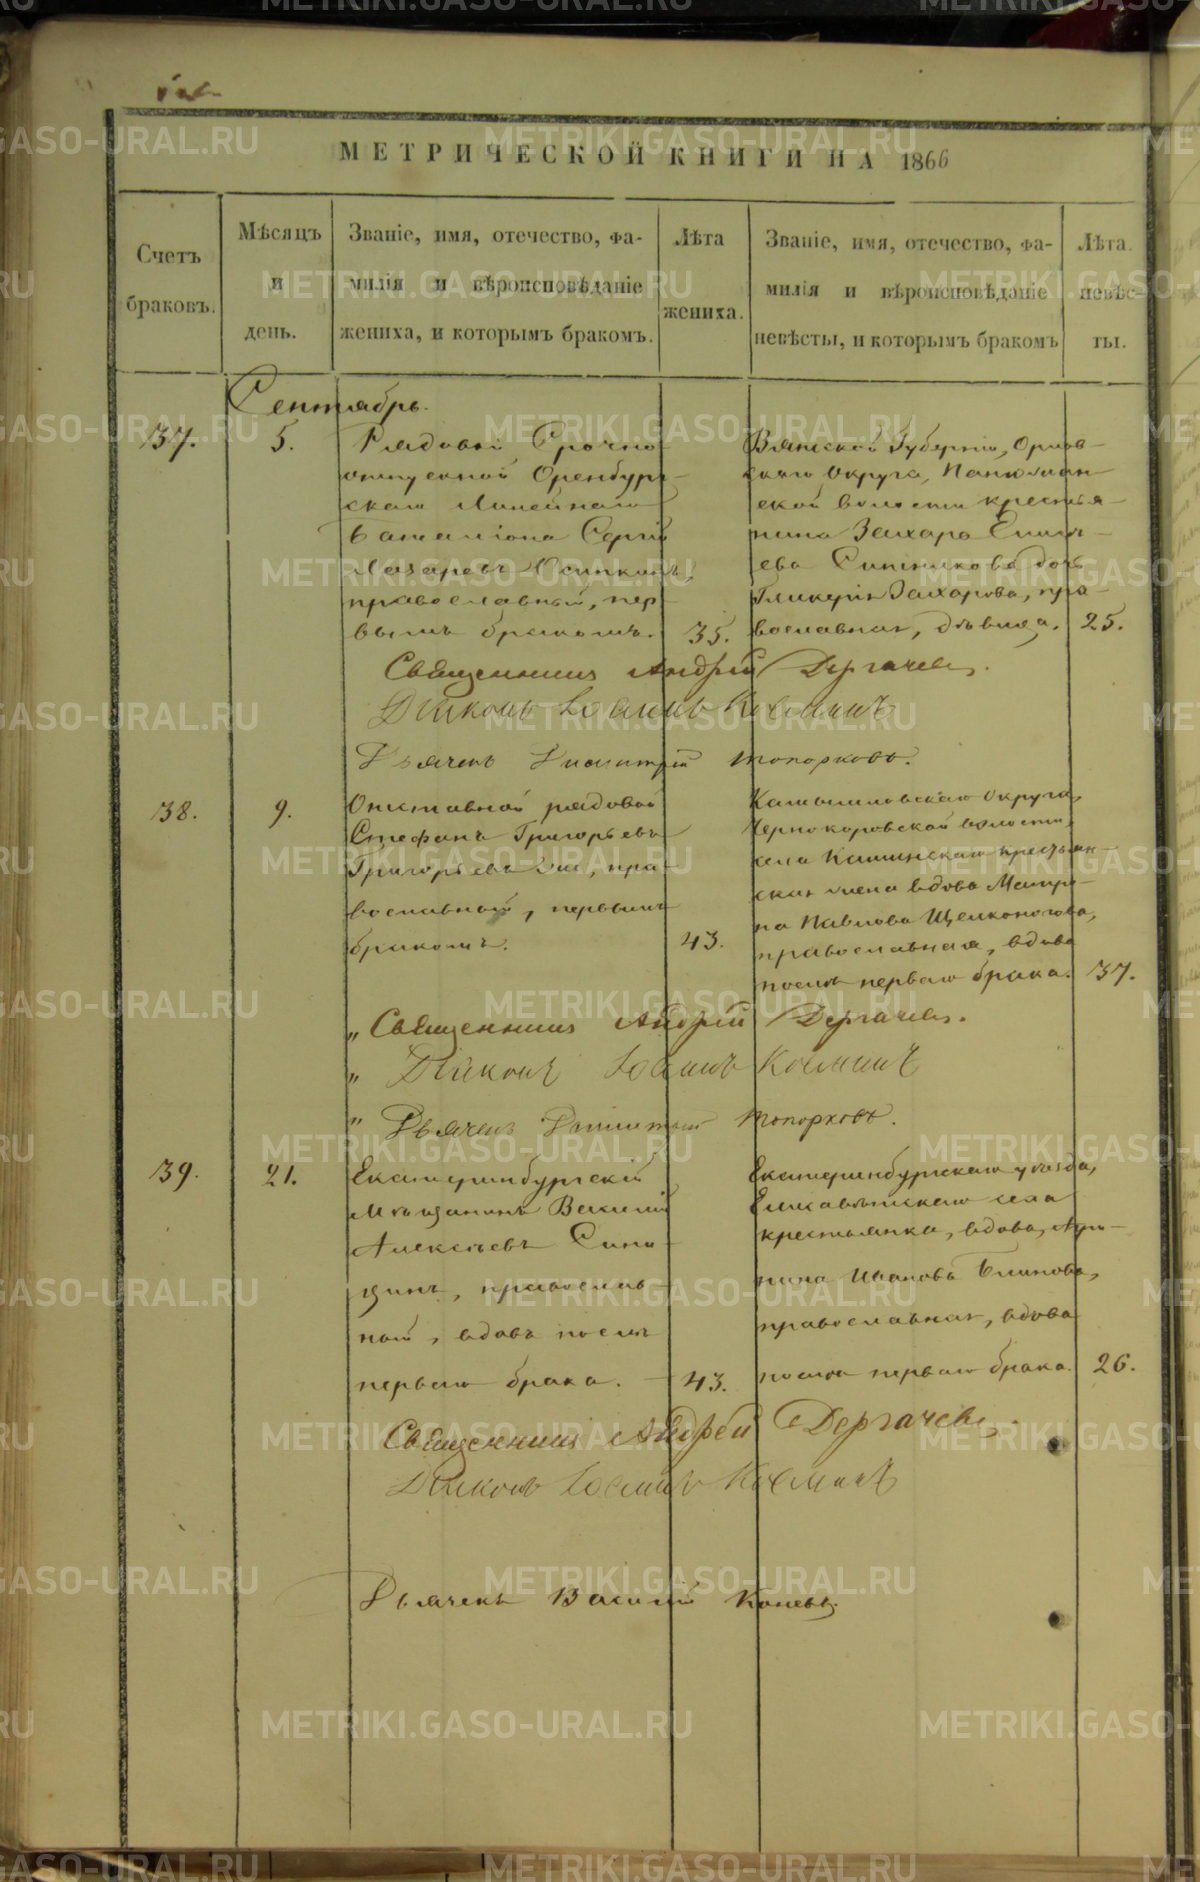 МЕТРИЧЕСКОЙ КНИГИ НА 1866
Счетъ браковъ.
Мѣсяцъ и день.
Званіе, имя, отечество, фа-
милія и вѣроисповѣданіе
жениха, и которымъ бракомъ.
Лѣта жениха.
Званіе, имя, отечество, фа-
милія и вѣроисповѣданіе
невѣсты, и которымъ бракомъ
Лѣта невѣс-
ты.
Сентябрь.
37.
5.
Рядовой Срочно-
отпускной Оренбург-
скаго Линейнаго
Баталіона Сергій
Лазаревъ
православный, пер-
вымъ бракомъ.
35.
Вятской Губерніи, Орлов-
скаго Округа,
ской волости крестья-
нина Захара
ева дочь
Гликерія Захарова, пра-
вославная, дѣвица.
25.
Священникъ Андрей Дергачевъ.
Діаконъ Іоаннъ Косминъ
Дьячекъ Димитрій Топорковъ.
38.
9.
Отставной рядовой
Стефанъ Григорьевъ
Григорьевъ же, пра-
вославный, первымъ
бракомъ.
43.
Камышловскаго Округа,
Чернокоровской волости,
села крестьян-
ская жена вдова Матре-
на Павлова Щелконогова,
православная, вдова
послѣ перваго брака.
37.
„ Священникъ Андрей Дергачевъ.
„ Діаконъ Іоаннъ Косминъ
„ Дьячекъ Димитрій Топорковъ.
39.
21.
Екатеринбургскій
Мѣщанинъ Василій
Алексѣевъ Сини-
цинъ, православ-
ной, вдовъ послѣ
перваго брака.
43.
Екатеринбургскаго уѣзда,
Елисаветскаго села
крестьянка, вдова, Агри-
пина Иванова Блинова,
православная, вдова
послѣ перваго брака.
26.
Священникъ Андрей Дергачевъ.
Діаконъ Іоаннъ Косминъ
Дьячекъ Василій Коневъ.
METRIKI.GASO-URAL.RU